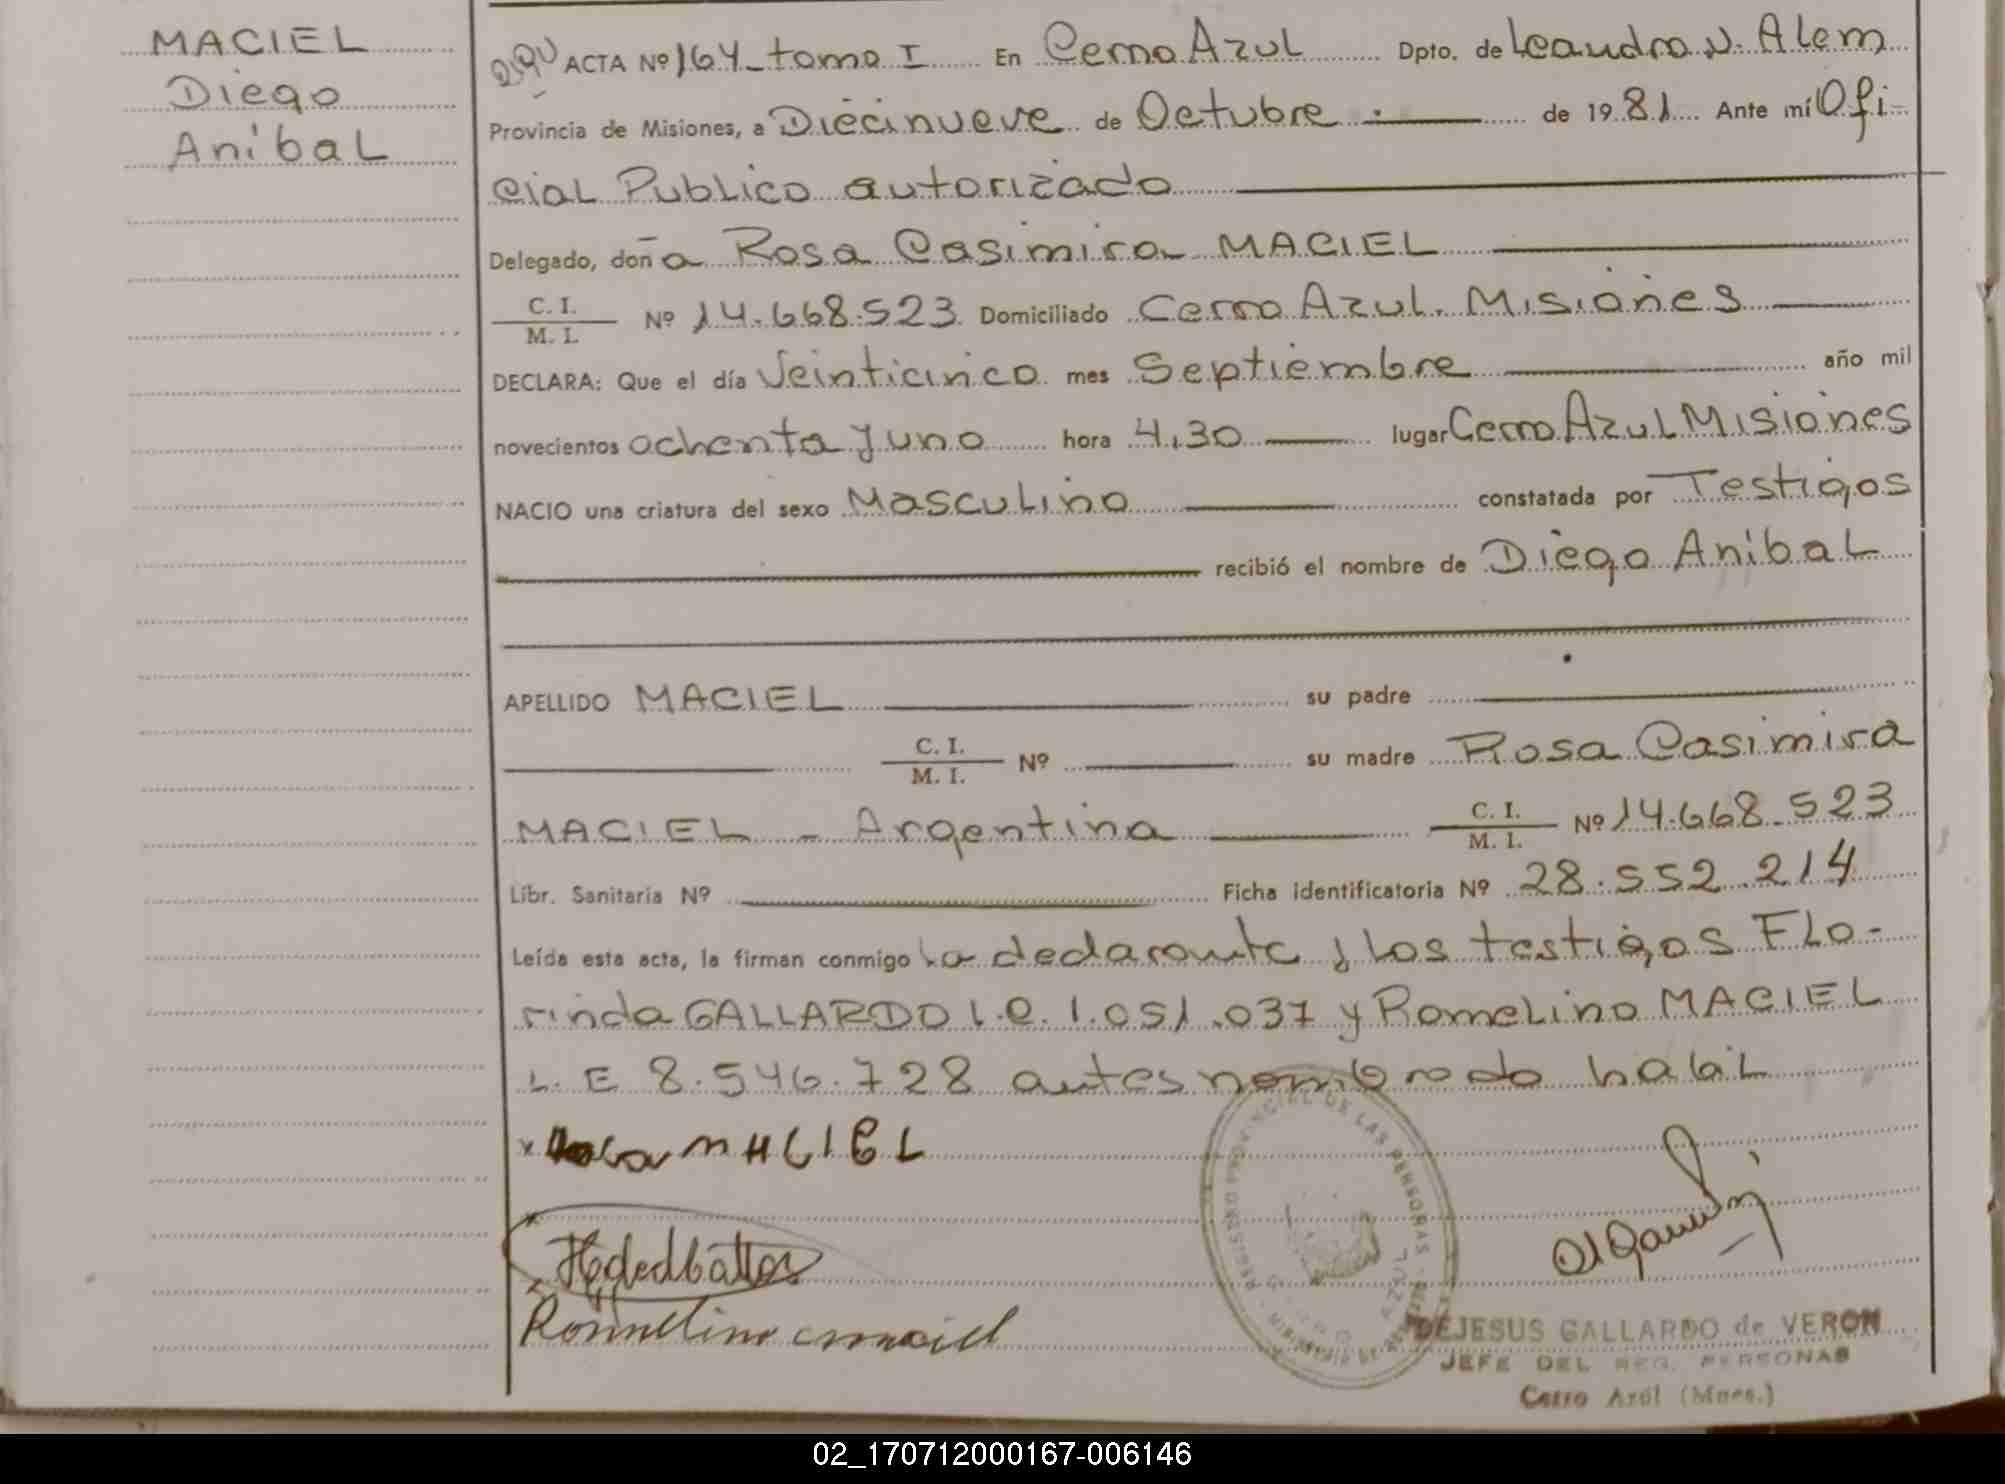 MACIEL
Diego
Anibal
ACTA Nº 164 - tomo I En Cerro Azul Dpto. de Leandro N. Alem
Provincia de Misiones, a Diecinueve de Octubre de 1981 Ante mí Ofi-
cial Publico autorizado
Delegado, doña Rosa Casimira MACIEL
C. I.
M. I. Nº 14.668.523 Domiciliado Cerro Azul. Misiones
DECLARA: Que el día Veinticinco mes Septiembre año mil
novecientos ochenta y uno hora 4,30 lugar Cerro Azul Misiones
NACIO una criatura del sexo Masculino constatada por Testigos
recibió el nombre de Diego Anibal
APELLIDO MACIEL su padre
C. I.
M. I. Nº su madre Rosa Casimira
MACIEL - Argentina C. I.
M. I. Nº 14.668.523
Libr. Sanitaria Nº Ficha identificatoria Nº 28.552.214
Leída esta acta, la firman conmigo la declarante y los testigos Flo-
rinda GALLARDO L.C. 1.051.037 y Romelino MACIEL
L.E 8.546.728 antes nombrado habil
x Rosa MACIEL
Romelino maciel
REGISTRO PROVINCIAL DE LAS PERSONAS
DEJESUS GALLARDO de VERON
JEFE DEL REG. PERSONAS
Cerro Azul (Mnes.)
02_170712000167-006146